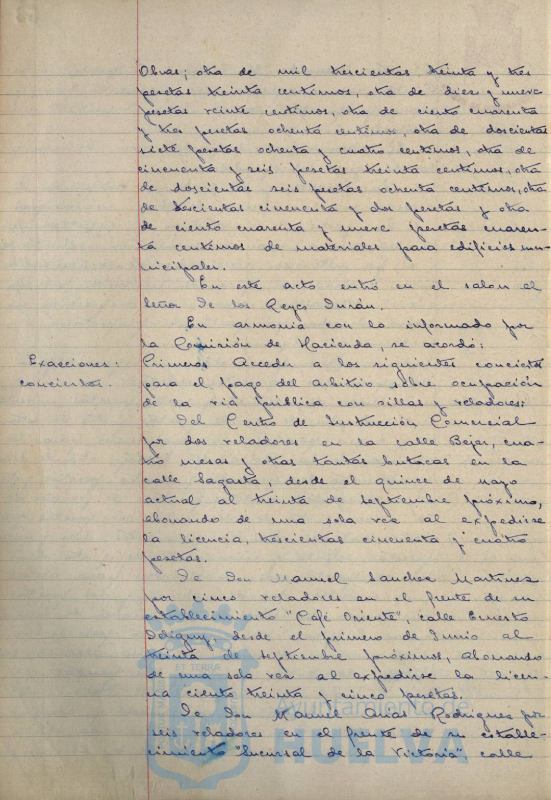 Obras; otra de mil trescientas treinta y tres
pesetas treinta centimos, otra de diez y nueve
pesetas veinte centimos, otra de ciento cuarenta
y tres pesetas ochenta centimos, otra de doscientas
siete pesetas ochenta y cuatro centimos, otra de
cincuenta y seis pesetas treinta centimos, otra
de doscientas seis pesetas ochenta centimos, otra
de trescientas cincuenta y dos pesetas y otra
de ciento cuarenta y nueve pesetas cuaren-
ta centimos de materiales para edificios mu-
nicipales.
En este acto entró en el salon el
Señor de los Reyes Durán.
En armonia con lo informado por
la Comisión de Hacienda, se acordó:
Exacciones:
conciertos.
Primero: Acceder a los siguientes conciertos
para el pago del arbitrio sobre ocupación
de la via pública con sillas y veladores:
Del Centro de Instrucción Comercial
por dos veladores en la calle Bejar, cua-
tro mesas y otras tantas butacas en la
calle Sagasta, desde el quince de mayo
actual al treinta de septiembre próximo,
abonando de una sola vez al expedirse
la licencia, trescientas cincuenta y cuatro
pesetas.
De Don Manuel Sanchez Martinez
por cinco veladores en el frente de su
establecimiento "Café Oriente", calle Ernesto
Deligny, desde el primero de Junio al
treinta de septiembre próximos, abonando
de una sola vez al expedirse la licen-
cia ciento treinta y cinco pesetas.
De Don Manuel Arias Rodriguez por
seis veladores en el frente de su estable-
cimiento "Sucursal de la Victoria", calle
ET TERRÆ
Ayuntamiento de
HUELVA